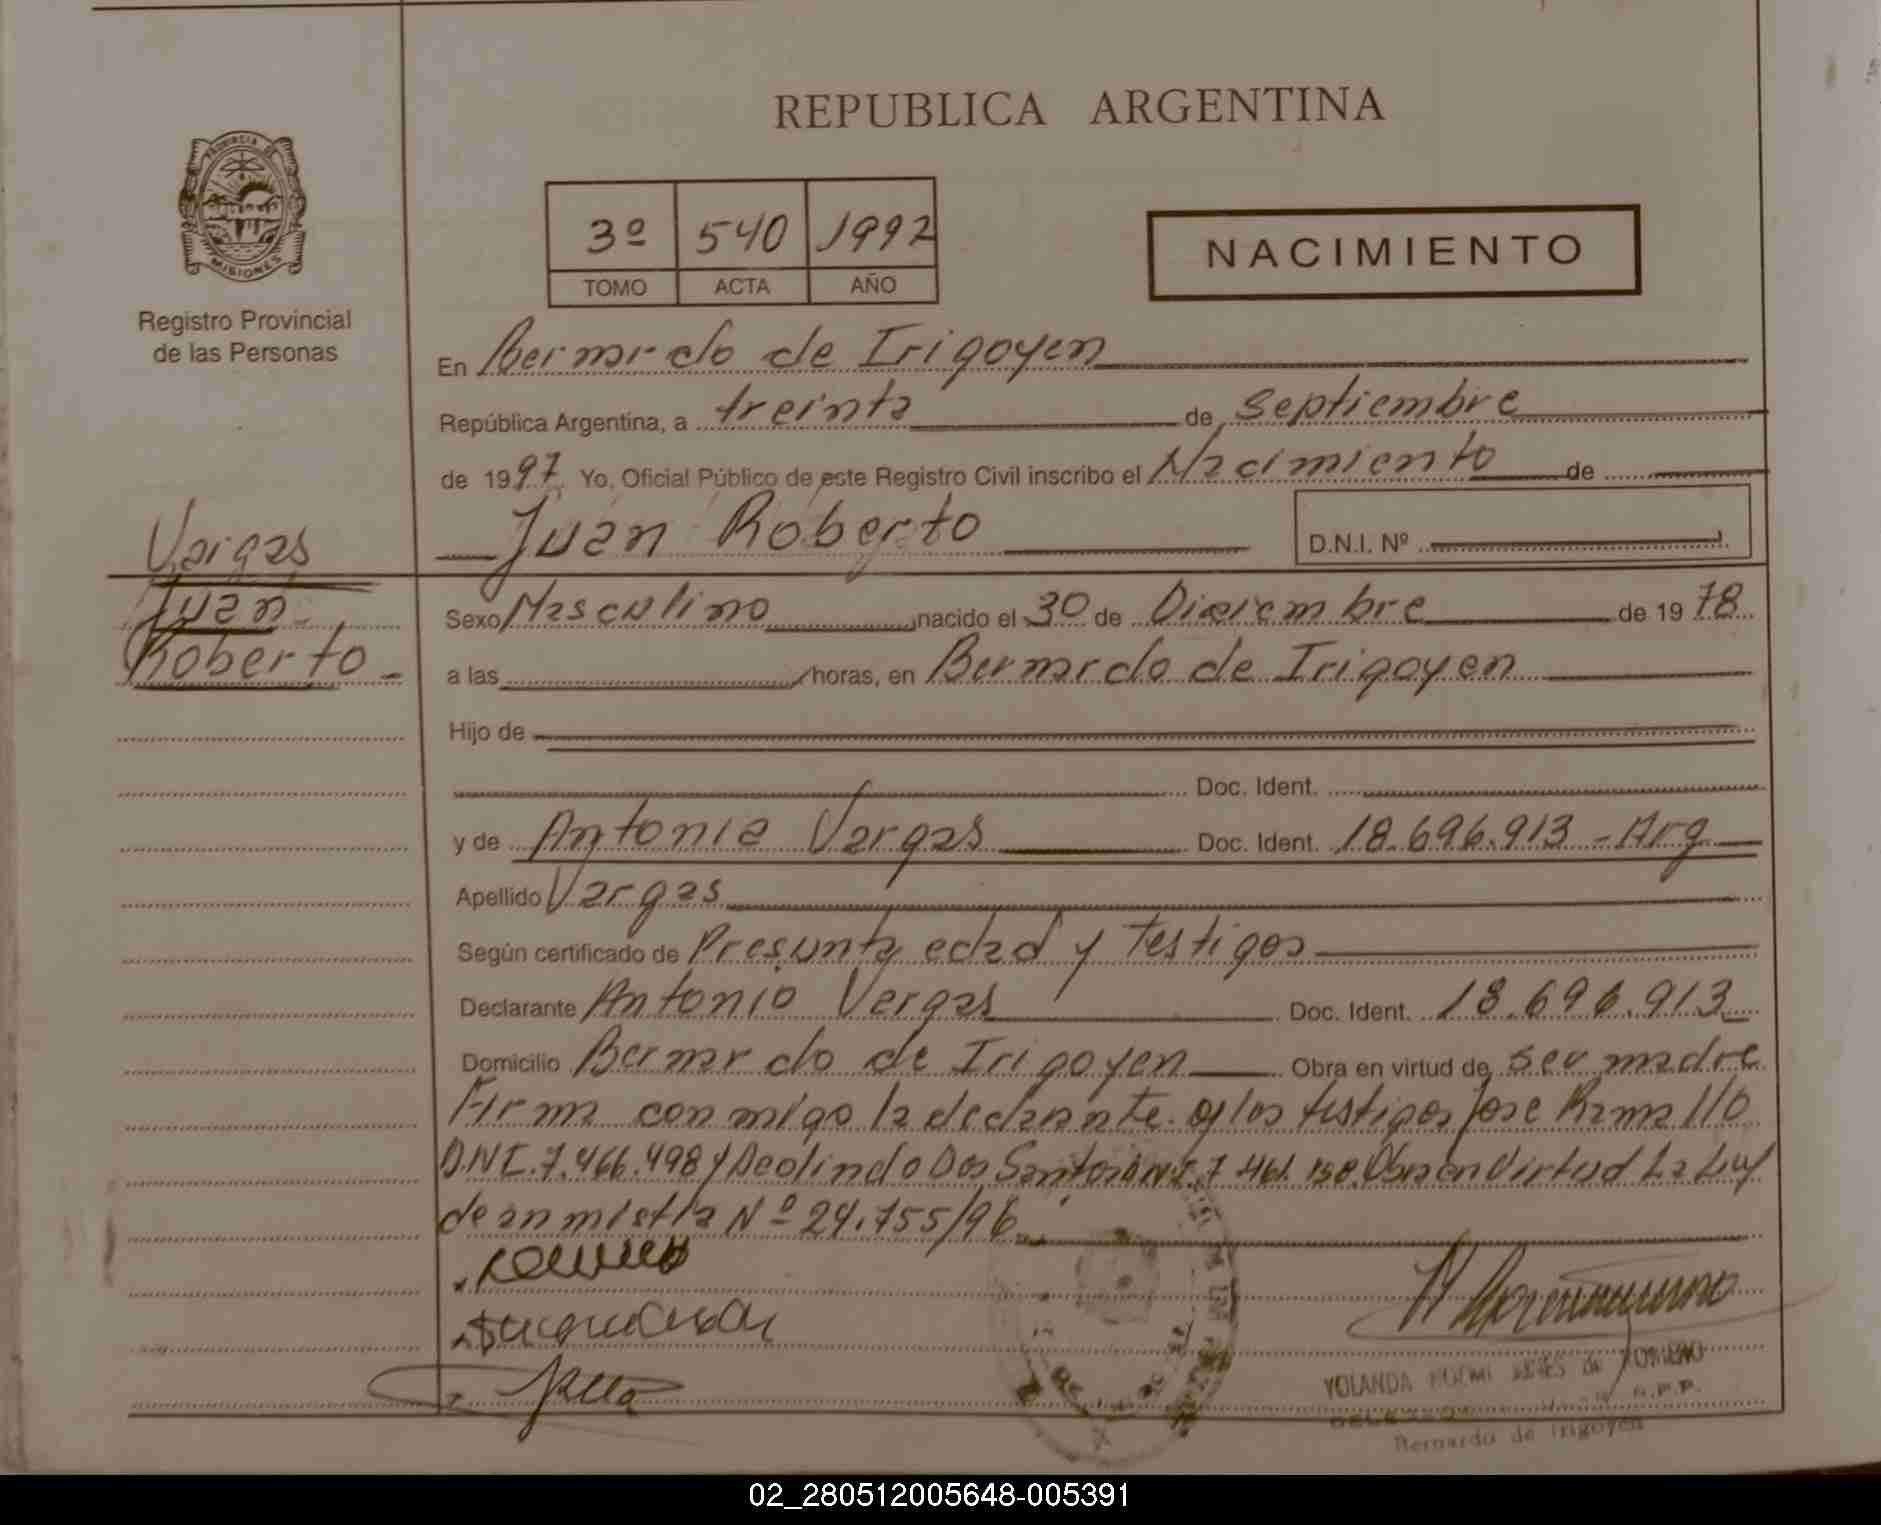 REPUBLICA ARGENTINA
PROVINCIA DE
MISIONES
Registro Provincial
de las Personas
3º 540 1992
TOMO ACTA AÑO
NACIMIENTO
En Bernardo de Irigoyen
República Argentina, a treinta de septiembre
de 1997 Yo, Oficial Público de este Registro Civil inscribo el Nacimiento de
Juan Roberto D.N.I. Nº
Vargas
Juan
Roberto
Sexo Masculino nacido el 30 de Diciembre de 1978
a las horas, en Bernardo de Irigoyen
Hijo de
Doc. Ident.
y de Antonia Vargas Doc. Ident. 18.696.913 - Arg
Apellido Vargas
Según certificado de Presunta edad y testigos
Declarante Antonio Vergas Doc. Ident. 18.696.913
Domicilio Bernardo de Irigoyen Obra en virtud de ser madre
Firma conmigo la declarante y los testigos Jose Ramallo
D.N.I. 7.466.498 y Deolindo Dos Santos D.N.I. 7.461.158. Obra en Virtud La Ley
de anmistia Nº 24.755/96
YOLANDA NOEMI DE ROMERO
R.P.P.
Bernardo de Irigoyen
02_280512005648-005391